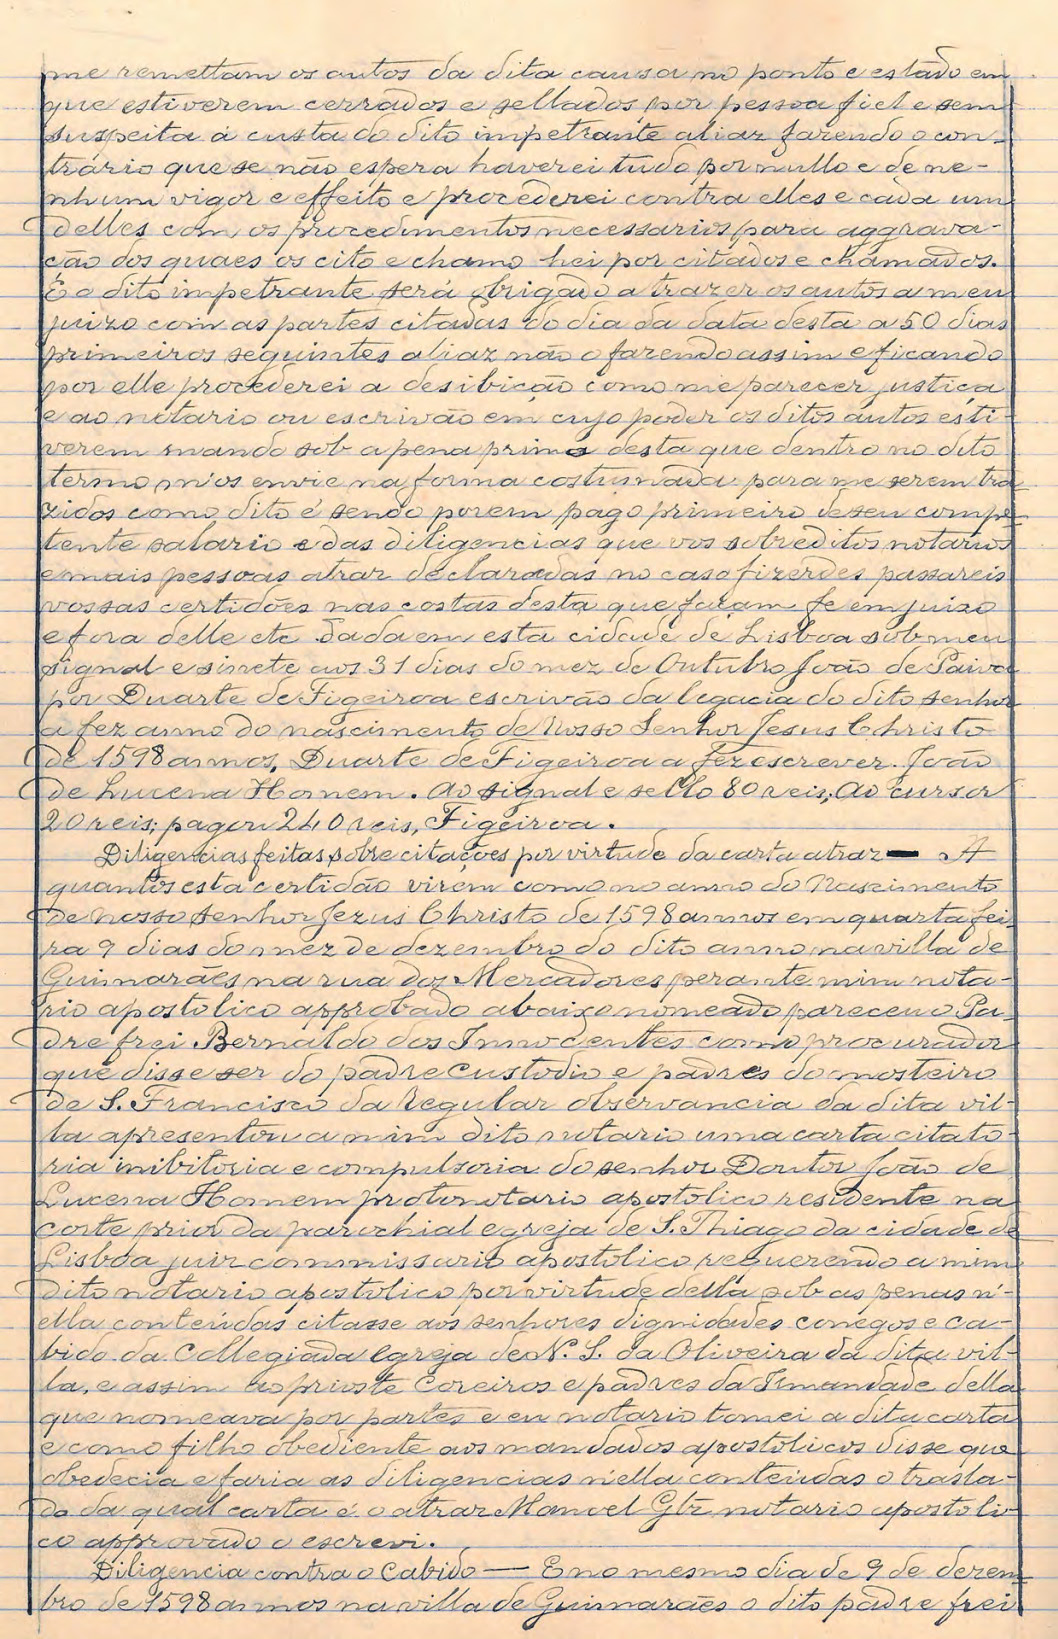 me remettam os autos da dita causa no ponto e estado em
que estiverem cerrados e sellados por pessoa fiel e sem
suspeita á custa do dito impetrante aliaz fazendo o con-
trário que se não espera haverei tudo por nullo e de ne-
nhum vigor e effeito e procederei contra elles e cada um
delles com os procedimentos necessarios para aggrava-
ção dos quaes os cito e chamo hei por citados e chamados.
E o dito impetrante será obrigado a trazer os autos a meu
juizo com as partes citadas do dia da data desta a 50 dias
primeiros seguintes aliaz não o fazendo assim e ficando
por elle procederei a desibição como me parecer justiça
e ao notario ou escrivão em cujo poder os ditos autos esti-
verem mando sob a pena prima desta que dentro no dito
termo m'os envie na forma costumada para me serem tra
zidos como dito é sendo porem pago primeiro de seu compe-
tente salario e das diligencias que vos sobreditos notarios
e mais pessoas atraz declaradas no caso fizerdes passareis
vossas certidões nas costas desta que façam fe em juizo
e fora delle etc Dada em esta cidade de Lisboa sob meu
signal e sinete aos 31 dias do mez de Outubro João de Paiva
por Duarte de Figeiroa escrivão da legacia do dito senhor
a fez anno do nascimento de Nosso Senhor Jesus Christo
de 1598 annos, Duarte de Figeiroa a fez escrever. João
de Lucena Homem. Ao signal e sello 80 reis; Ao cursor
20 reis; pagou 240 reis, Figeiroa.
Diligencias feitas sobre citações por virtude da carta atraz — A
quantos esta certidão virem como no anno do Nascimento
de nosso senhor Jezus Christo de 1598 annos em quarta fei
ra 9 dias do mez de dezembro do dito anno na villa de
Guimarães na rua dos Mercadores perante mim nota-
rio apostolico approbado abaixo nomeado pareceu o Pa-
dre frei Bernaldo dos Innocentes como procurador
que disse ser do padre Custodio e padres do mosteiro
de S. Francisco da regular observancia da dita vil-
la apresentou a mim dito notario uma carta citato-
ria inibitoria e compulsoria do senhor Doutor João de
Lucena Homem protonotario apostolico residente na
corte prior da parochial egreja de S. Thiago da cidade de
Lisboa juiz commissario apostolico requerendo a mim
dito notario apostolico por virtude della sob as penas n'-
ella conteudas citasse aos senhores dignidades conegos e ca-
bido da Collegiada Egreja de N. S. da Oliveira da dita vil-
la, e assim ao prioste Coreiros e padres da Irmandade della
que nomeava por partes e eu notario tomei a dita carta
e como filho obediente aos mandados apostolicos disse que
obedecia e faria as diligencias n'ella conteudas o trasla-
do da qual carta é o atraz Manoel Glz notario apostoli-
co approvado o escrevi.
Diligencia contra o Cabido — E no mesmo dia de 9 de dezem
bro de 1598 annos na villa de Guimarães o dito padre frei